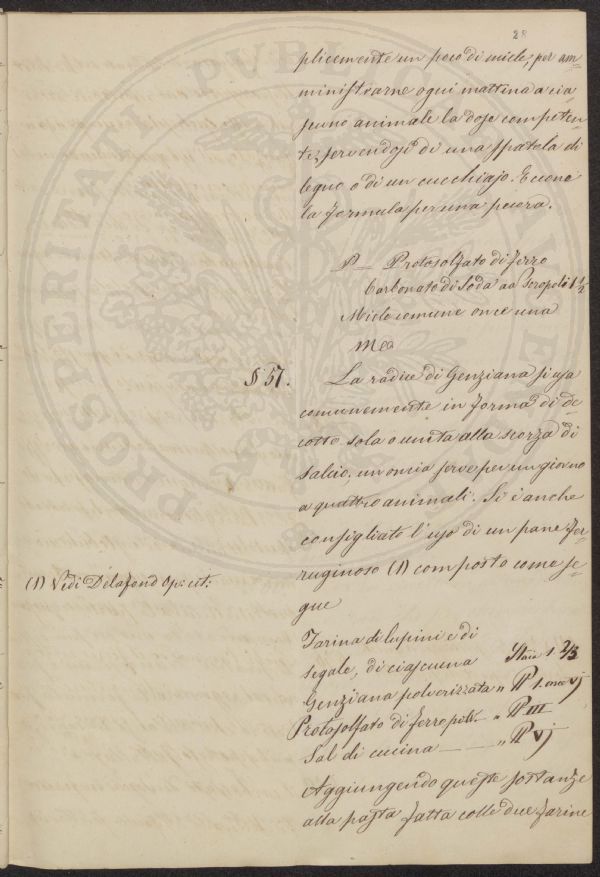 28
plicemente un poco di miele, per am=
ministrarne ogni mattina a cia
scuno animale la dose competen=
te, servendosi di una spatola di
legno o di un cucchiajo. Eccone
la formula per una pecora.
P — Protosolfato di ferro
Carbonato di Soda aa Scropoli 1 1/2
Miele comune once una
§ 57.
La radice di Genziana si usa
comunemente in forma di de=
cotto sola o unita alla scorza di
Salcio. un oncia serve per un giorno
a quattro animali. Si è anche
consigliato l'uso di un pane fer=
ruginoso (1) composto come se=
gue
(1) Vedi Délafond Op: cit:
Farina di lupini e di
segale, di ciascuna Staia 1. 2/3
Genziana polverizzata " 1. once vj
Protosolfato di ferro polv. — " III
Sal di cucina ——— " vj
Aggiungendo queste sostanze
alla pasta fatta colle due farine
PROSPERITATI PUBL